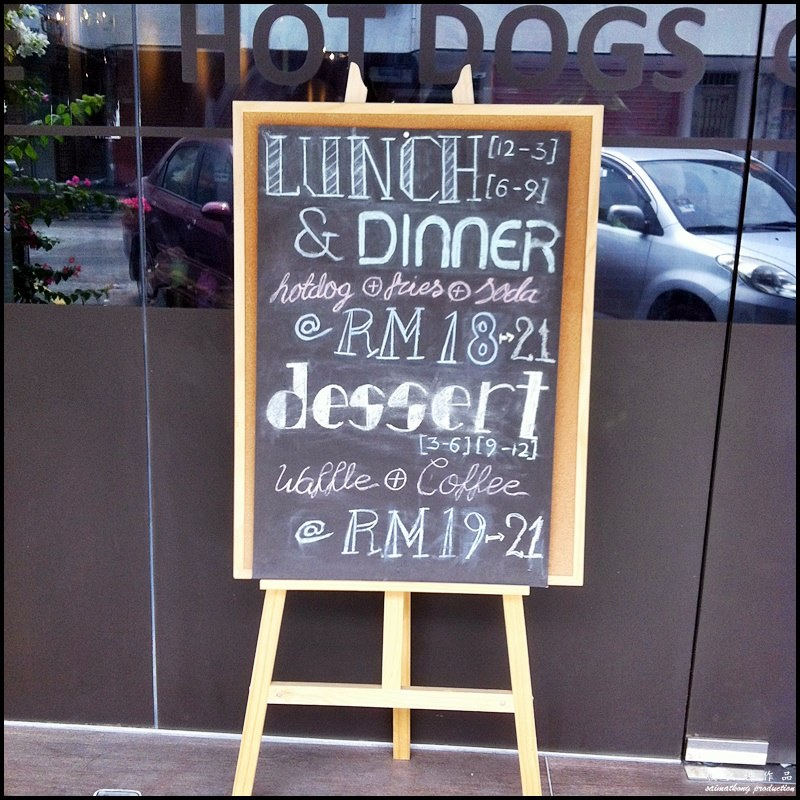 HOT DOGS
LUNCH [12-3]
[6-9]
& DINNER
hotdog + fries + soda
@ RM 18→21
dessert
[3-6] [9-12]
Waffle + Coffee
@ RM 19→21
作品
saimatkong production